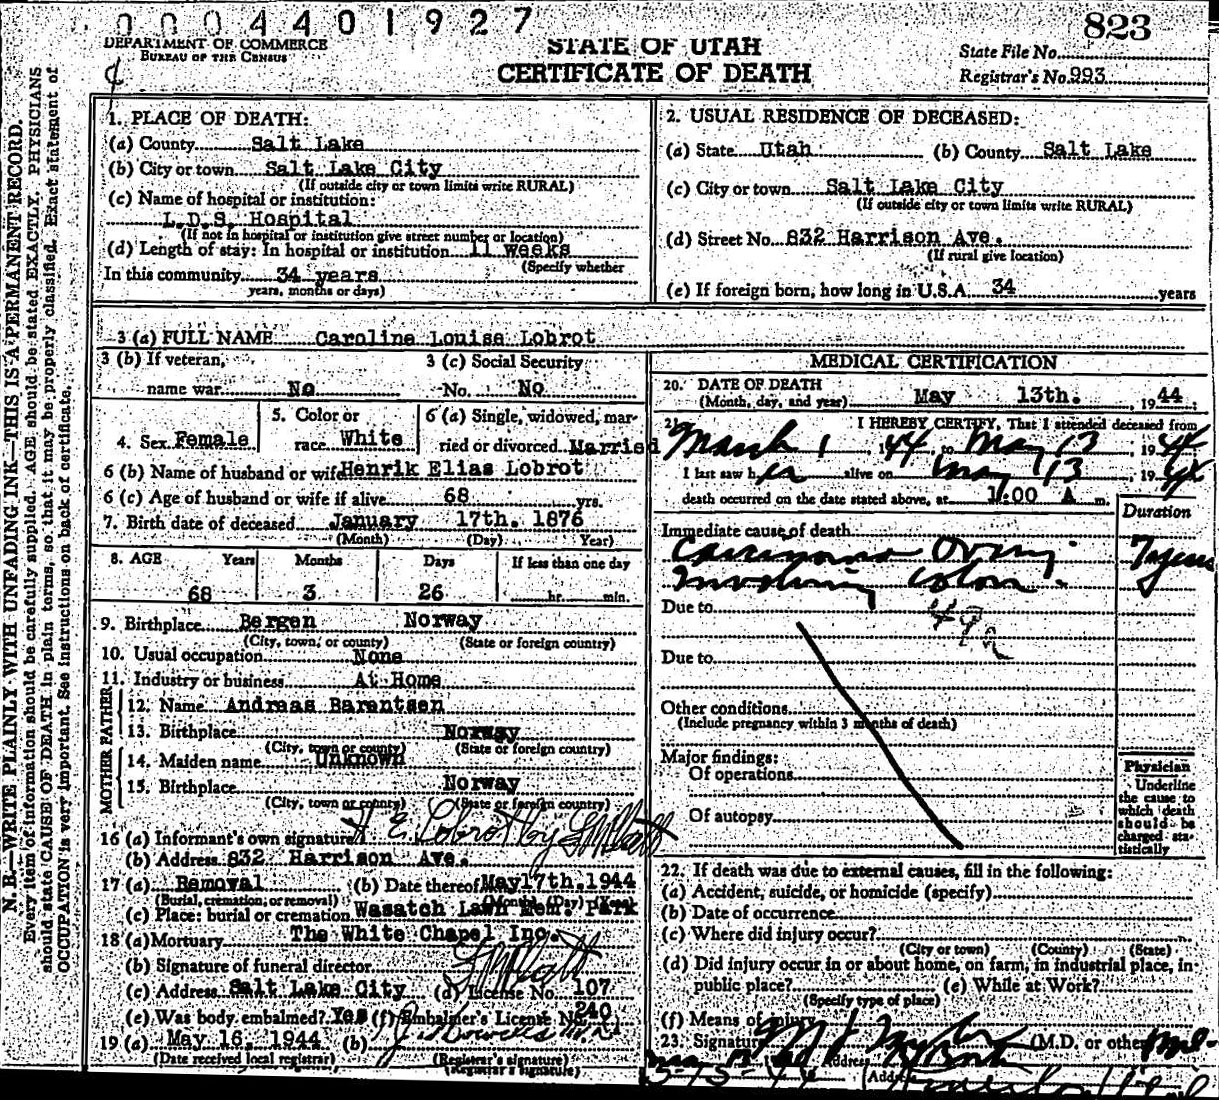 0004401927
823
DEPARTMENT OF COMMERCE
BUREAU OF THE CENSUS
STATE OF UTAH
CERTIFICATE OF DEATH
State File No.
Registrar's No. 993
N. B.—WRITE PLAINLY WITH UNFADING INK—THIS IS A PERMANENT RECORD.
Every item of information should be carefully supplied. AGE should be stated EXACTLY. PHYSICIANS
should state CAUSE OF DEATH in plain terms, so that it may be properly classified. Exact statement of
OCCUPATION is very important. See instructions on back of certificate.
1. PLACE OF DEATH:
(a) County Salt Lake
(b) City or town Salt Lake City
(If outside city or town limits write RURAL)
(c) Name of hospital or institution:
L.D.S. Hospital
(If not in hospital or institution give street number or location)
(d) Length of stay: In hospital or institution 11 weeks
(Specify whether
In this community 34 years
years, months or days)
2. USUAL RESIDENCE OF DECEASED:
(a) State Utah (b) County Salt Lake
(c) City or town Salt Lake City
(If outside city or town limits write RURAL)
(d) Street No. 832 Harrison Ave.
(If rural give location)
(e) If foreign born, how long in U.S.A. 34 years
3 (a) FULL NAME Caroline Louise Lobrot
3 (b) If veteran, name war No
3 (c) Social Security No. No
4. Sex Female
5. Color or race White
6 (a) Single, widowed, married or divorced Married
6 (b) Name of husband or wife Henrik Elias Lobrot
6 (c) Age of husband or wife if alive 68 yrs.
7. Birth date of deceased January 17th. 1876
(Month) (Day) Year)
8. AGE Years Months Days If less than one day
68 3 26 hr. min.
9. Birthplace Bergen Norway
(City, town, or county) (State or foreign country)
10. Usual occupation None
11. Industry or business At Home
FATHER
12. Name Andreas Barentsen
13. Birthplace Norway
(City, town or county) (State or foreign country)
MOTHER
14. Maiden name Unknown
15. Birthplace Norway
(City, town or county) (State or foreign country)
16 (a) Informant's own signature H E Lobrot by
(b) Address 832 Harrison Ave.
17 (a) Removal (b) Date thereof May 17th. 1944
(Burial, cremation, or removal) (Month) (Day) (Year)
(c) Place: burial or cremation Wasatch Lawn Mem. Park
18 (a) Mortuary The White Chapel Inc.
(b) Signature of funeral director
(c) Address Salt Lake City (d) License No. 107
(e) Was body embalmed? Yes (f) Embalmer's License No. 240
19 (a) May 16, 1944 (b)
(Date received local registrar) (Registrar's signature)
(Registrar's signature)
MEDICAL CERTIFICATION
20. DATE OF DEATH
(Month, day, and year) May 13th. , 19 44
21. I HEREBY CERTIFY, That I attended deceased from
March 1, 19 44, to May 13, 19 44
I last saw her alive on May 13, 19 44
death occurred on the date stated above, at 1:00 A m.
Duration
Immediate cause of death
Carcinoma Ovary
Involving Colon.
7 years
Due to
49a
Due to
Other conditions
(Include pregnancy within 3 months of death)
Major findings:
Of operations
Of autopsy
Physician
Underline
the cause to
which death
should be
charged sta-
tistically
22. If death was due to external causes, fill in the following:
(a) Accident, suicide, or homicide (specify)
(b) Date of occurrence
(c) Where did injury occur?
(City or town) (County) (State)
(d) Did injury occur in or about home, on farm, in industrial place, in
public place? (e) While at Work?
(Specify type of place)
(f) Means of injury
23. Signature (M.D. or other)
5-15-44 Address
(Addr